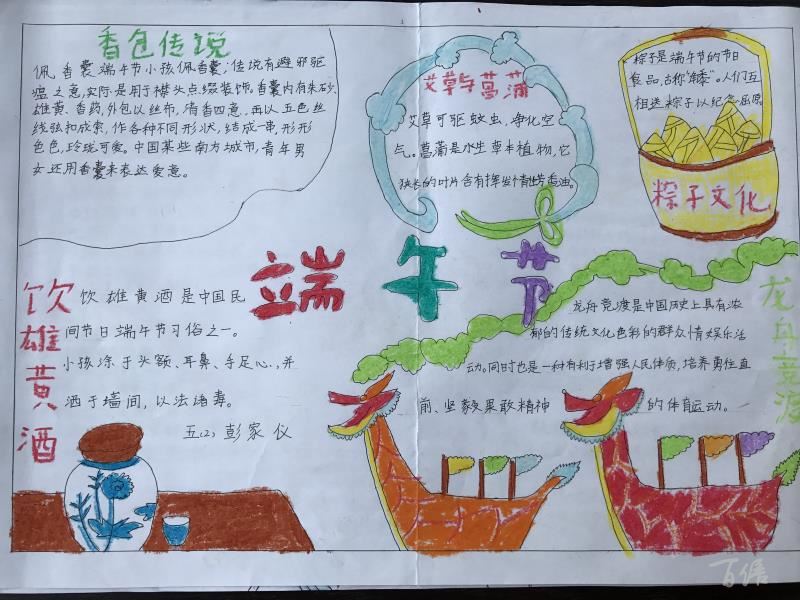 香包传说
佩香囊端午节小孩佩香囊,传说有避邪驱
瘟之意,实际是用于襟头点缀装饰,香囊内有朱砂、
雄黄、香药,外包以丝布,清香四意,再以五色丝
线弦扣成索,作各种不同形状,结成一串,形形
色色,玲珑可爱。中国某些南方城市,青年男
女还用香囊来表达爱意。
艾草与菖蒲
艾草可驱蚊虫,净化空
气。菖蒲是水生草本植物,它
狭长的叶片含有挥发个芳香油。
粽子是端午节的节日
食品,古称“角黍”。人们互
相送粽子以纪念屈原
粽子文化
端午节
饮雄黄酒
饮雄黄酒是中国民
间节日端午节习俗之一。
小孩涂于头额、耳鼻、手足心,并
洒于墙间,以法诸毒。
五(2)彭家仪
龙舟竞渡
龙舟竞渡是中国历史上具有浓
郁的传统文化色彩的群众情娱乐活
动。同时也是一种有利于增强人民体质,培养勇往直
前、坚毅果敢精神的体育运动。